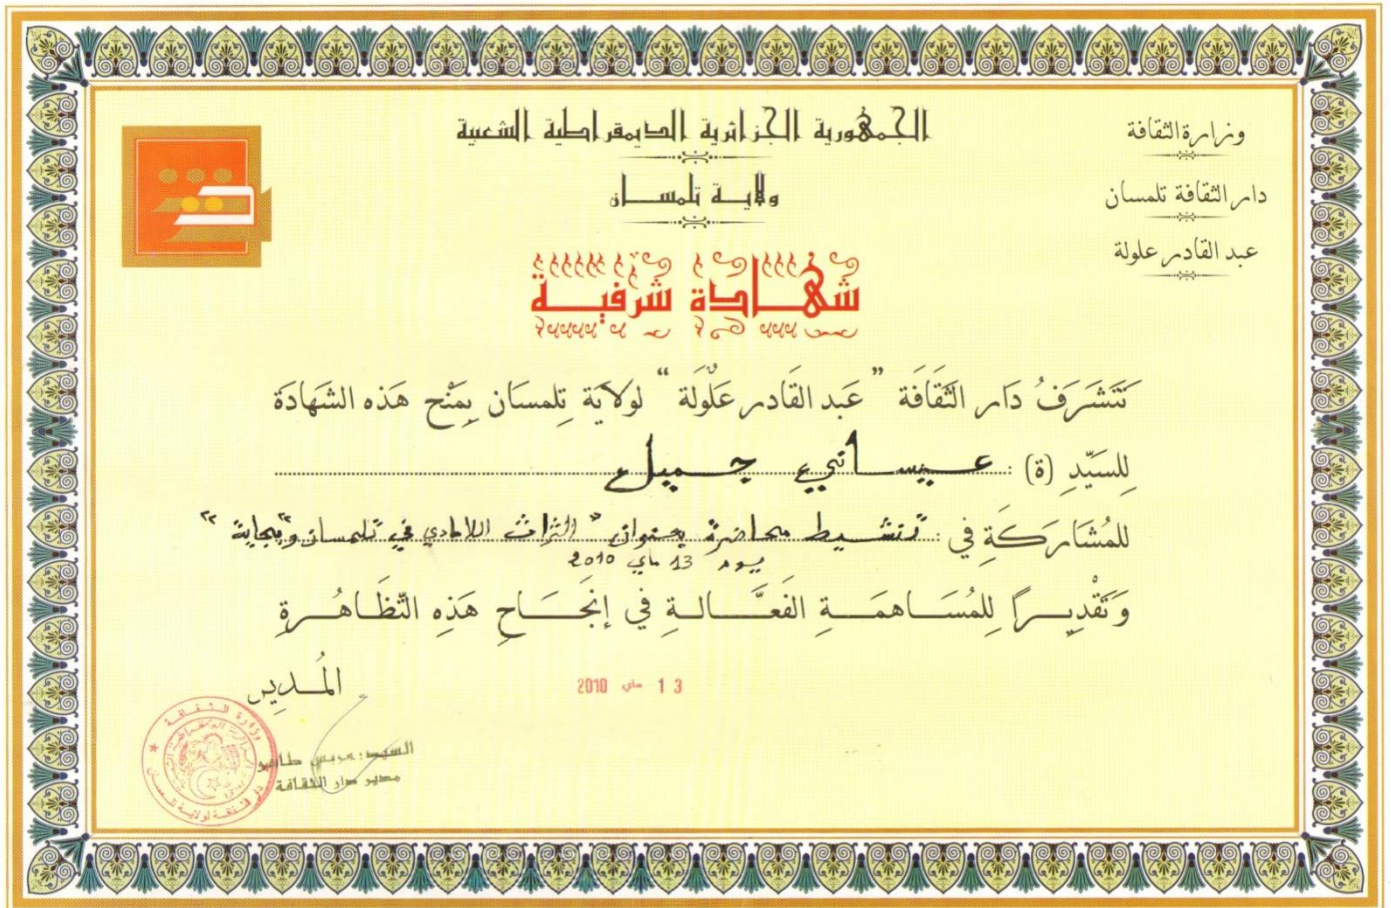 الجمهورية الجزائرية الديمقراطية الشعبية
وزارة الثقافة
ولايـة تلمســان
دار الثقافة تلمسان
عبد القادر علولة
شهـادة شرفيـة
تَتَشَرَفُ دَار الثَقَافَة " عَبد القَادر عَلُّولَة " لولاَيَة تِلمسَان بِمَنْح هَذه الشَهادَة
لِلسَيّدِ (ة) : عـيسـاني جـميل
للمُشَارَكَةِ في : تنشـيط محاضرة بعنوان " التراث اللامادي في تلمسان و بجاية "
يوم 13 ماي 2010
وَتَقْديـراً لِلمُسَـاهمَـةِ الفَعَّـالـةِ فِي إنجَـاحِ هَذِه التّظَاهُـرةِ
المُـدير
13 ماي 2010
السيد:
مدير دار الثقافة
وزارة الثقـافـة
دار الثقافة لولاية تلمسان